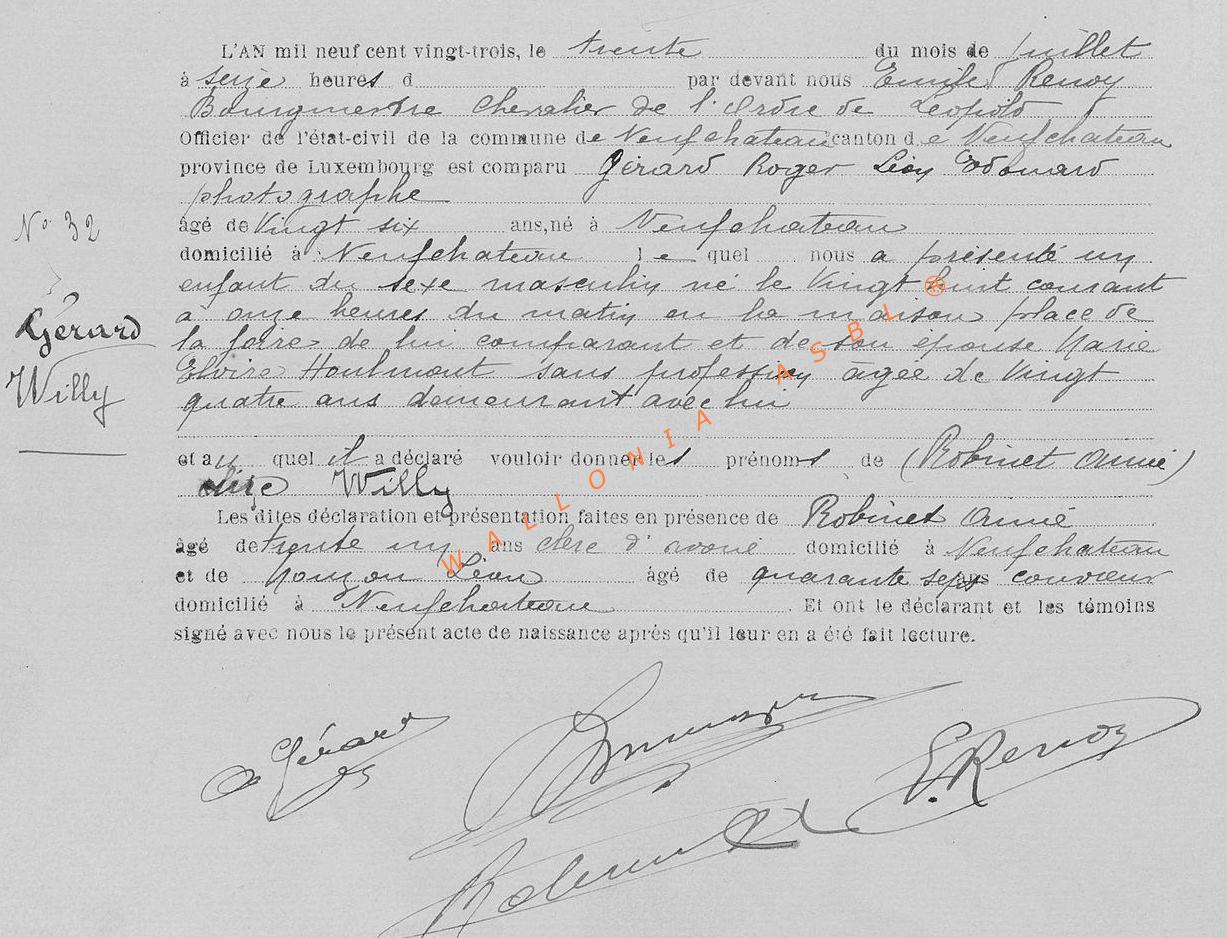 L'AN mil neuf cent vingt-trois, le trente du mois de juillet
à seize heures d par devant nous Emile Renoy
Bourgmestre Chevalier de l'Ordre de Léopold
Officier de l'état-civil de la commune de Neufchateau canton de Neufchateau
province de Luxembourg est comparu Gérard Roger Léon Edouard
photographe
N° 32
âgé de Vingt six ans, né à Neufchateau
domicilié à Neufchateau le quel nous a présenté un
enfant du sexe masculin né le Vingt huit courant
Gérard
à onze heures du matin en la maison place de
la foire de lui comparant et de son épouse Marie
Willy
Elvire Houlmont sans profession agée de Vingt
quatre ans demeurant avec lui
et au quel il a déclaré vouloir donner les prénoms de (Robinet Aimé)
Willy
Les dites déclaration et présentation faites en présence de Robinet Aimé
âgé de trente un ans clerc d'avoué domicilié à Neufchateau
et de Léon âgé de quarante sept ans couvreur
domicilié à Neufchateau. Et ont le déclarant et les témoins
signé avec nous le présent acte de naissance après qu'il leur en a été fait lecture.
WALLONIA ASBL ®
Gérard
E. Renoy
Robinet